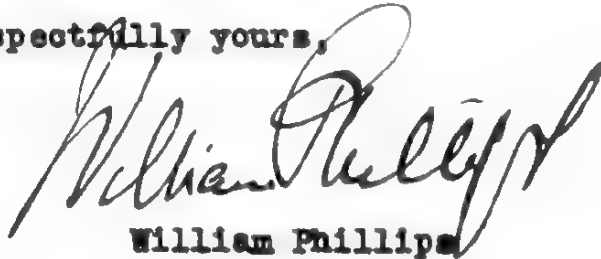 spectfully yours,
William Phillips
William Phillips